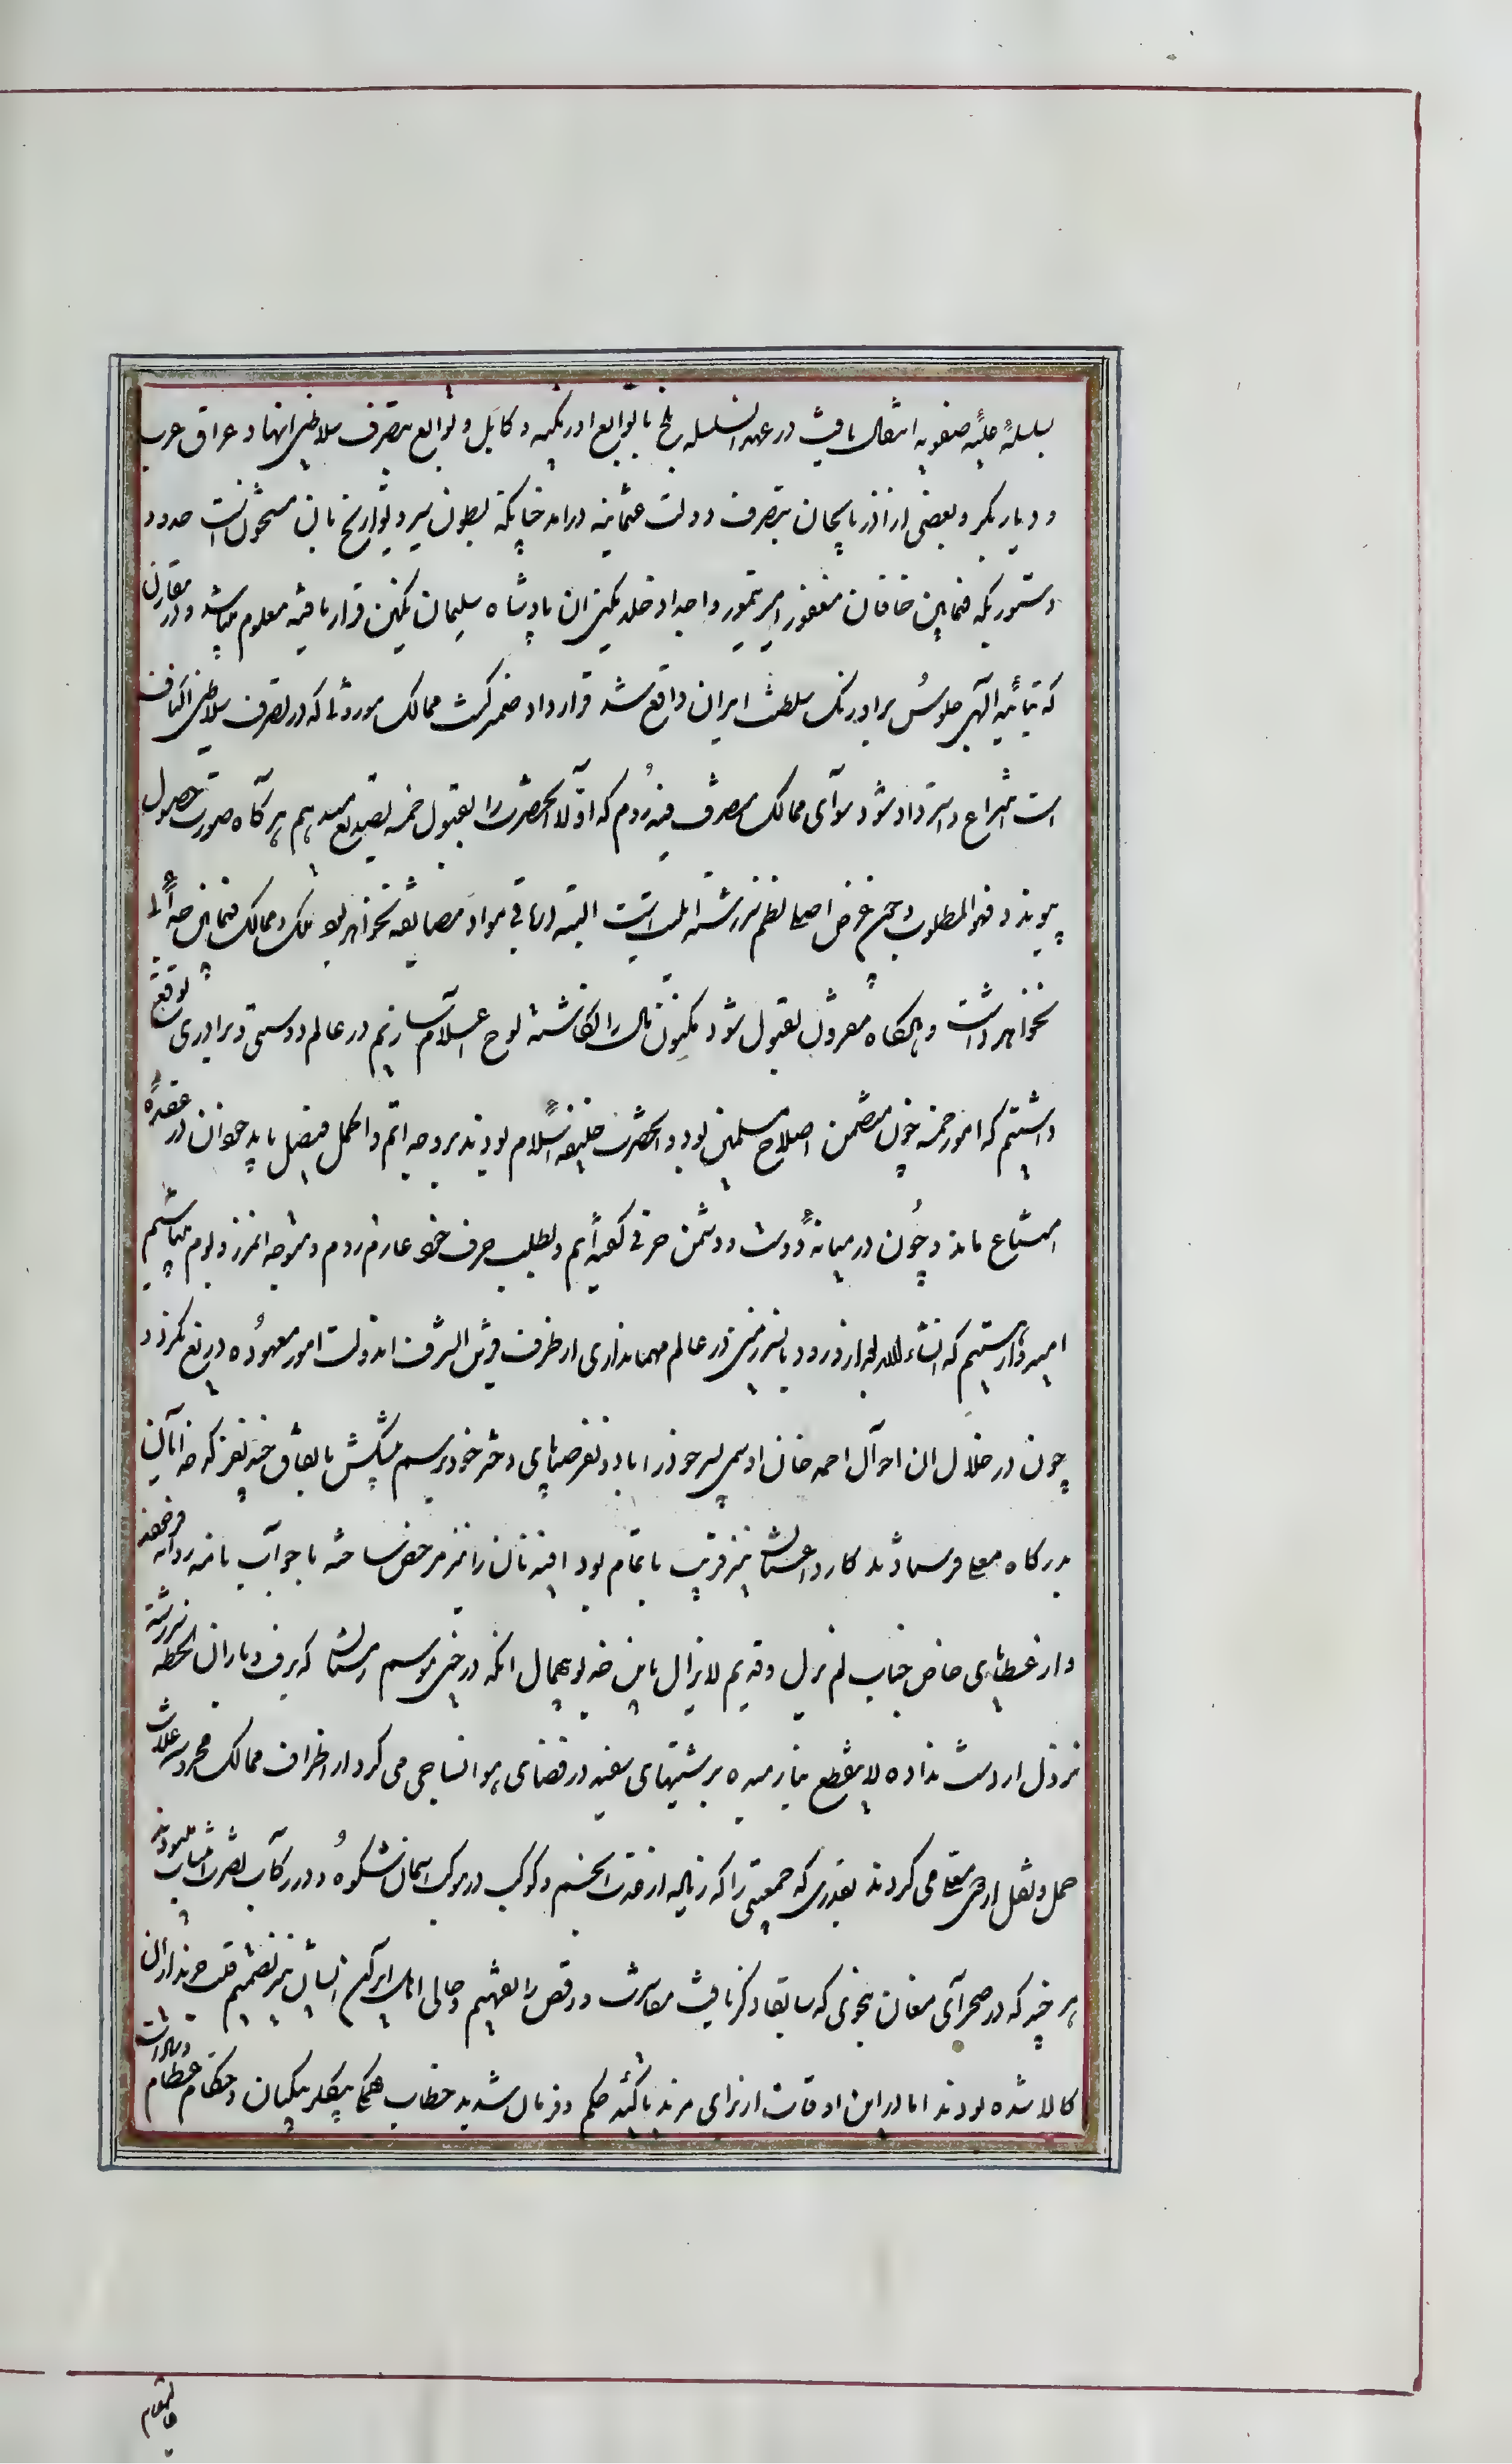 بسلسلهٔ علیّه صفویه انتقال یافت در عهد انسلسله بلخ با توابع اوزبکیه و کابل و توابع بتصرف سلاطین انها و عراق عرب
و دیاربکر و بعضی از اذربایجان بتصرف دولت عثمانیه درامد چنانکه بطون سیر و تواریخ بان مشحون است حدود
دستوریکه فیمابین خاقان مغفور امیر تیمور و اجداد خلد مکین ان پادشاه سلیمان نکین قرار یافته معلوم میباشد و در مقارن
که بتائید الهی جلوس بر اورنک سلطنت ایران واقع شد قرارداد ضمیر کشت ممالک موروثی که در تصرف سلاطین اکناف
است انتزاع و استرداد شود سوای ممالک متصرف فیه روم که اولا انحضرت را بقبول خمسه تصدیع میدهیم هر کاه صورت حصول
پیوندد فهو المطلوب و چون غرض اصلی نظم سررشته ملت است البته در باقی مواد مضایقه نخواهد بود ملک و ممالک فیمابین جدائی
نخواهد داشت و هرکاه مقرون بقبول نشود مکنون بال را نکاشته لوح اعلام سازیم در عالم دوستی و برادری توقع
داشتیم که امور خمسه چون متضمن اصلاح مسلمین بود و انحضرت خلیفه اسلام بودند بر وجه اتم و اکمل فیصل یابد چو ان در عقده
امتناع ماند و چون در میانهٔ دوست و دشمن حرفی کفته‌ایم و بطلب حرف خود عازم روم و متوجه انمرز و بوم میباشیم
امیدوار هستیم که انشاء الله بعد از ورود بانسرزمین در عالم مهمانداری از طرف قرین الشرف اندولت امور معهوده دریغ نکردد
چون در خلال ان احوال احمد خان اوسمی پسر خود را با دو نفر صبایای دختر خود برسم پیشکش باتفاق چند نفر کدخدایان
بدرکاه معلی فرستاد کار داغستان نیز قریب باتمام بود افندیان را نیز مرخص ساخته با جواب نامه روانه فرمودند
و از عطایای خاص جناب لم یزل و قدیم لایزال باین خدیو بیهمال انکه در چنین موسم زمستان که برف و باران لحظه سررشته
نزول از دست نداده لاینقطع نیازمنده بر شتیهای سفید در فضای هوا نساجی می کرد از اطراف ممالک محروسه غلات
حمل و نقل اردوی معلی می کردند بقدری که جمعیتی را که زیاده از عدت انجم و کوکب در موکب اسمان شکوه و در رکاب نصرت انتساب میبودند
هر چند که در صحرای مغان بنحوی که سابقا ذکر یافت معاشرت و رقص را تفهیم و حالی اهل ایران ایشان نیز بضمیمه قلت خریداران
کالا شده بودند اما در این اوقات از برای مزید تاکید حکم و فرمان شدید خطاب همکی بیکلربیکیان و حکام عظام و ولایات
عالیمقام